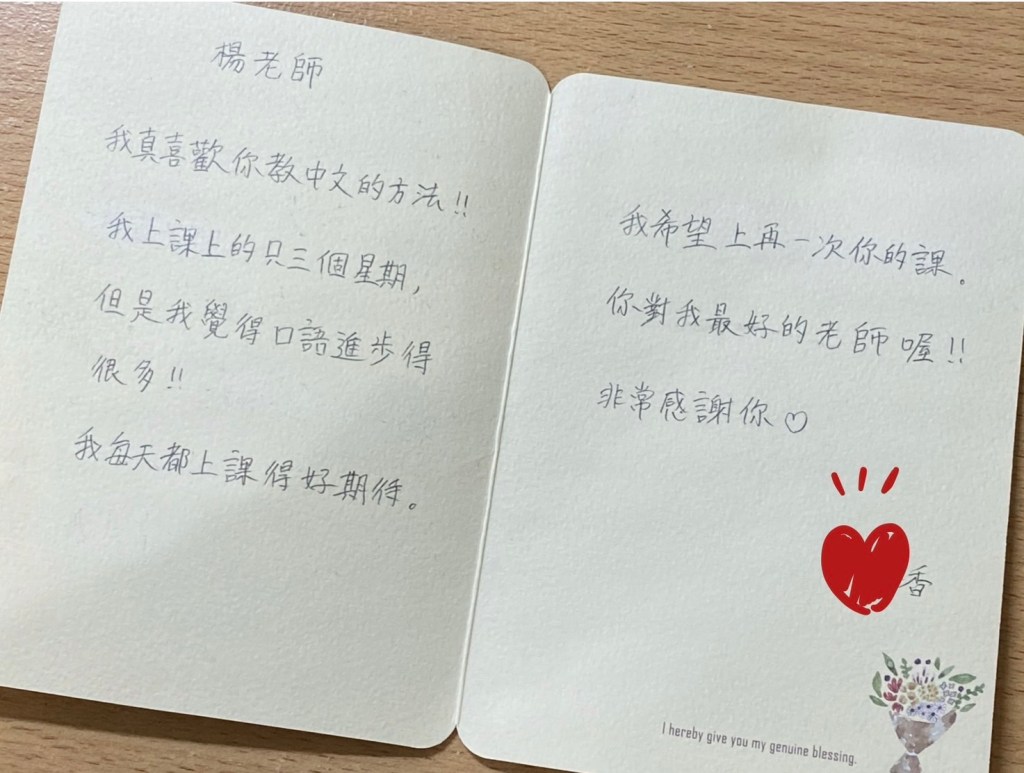 楊老師
我真喜歡你教中文的方法!!
我上課上的只三個星期,
但是我覺得口語進步得
很多!!
我每天都上課得好期待。
我希望上再一次你的課.
你對我最好的老師喔!!
非常感謝你♡
香
I hereby give you my genuine blessing.